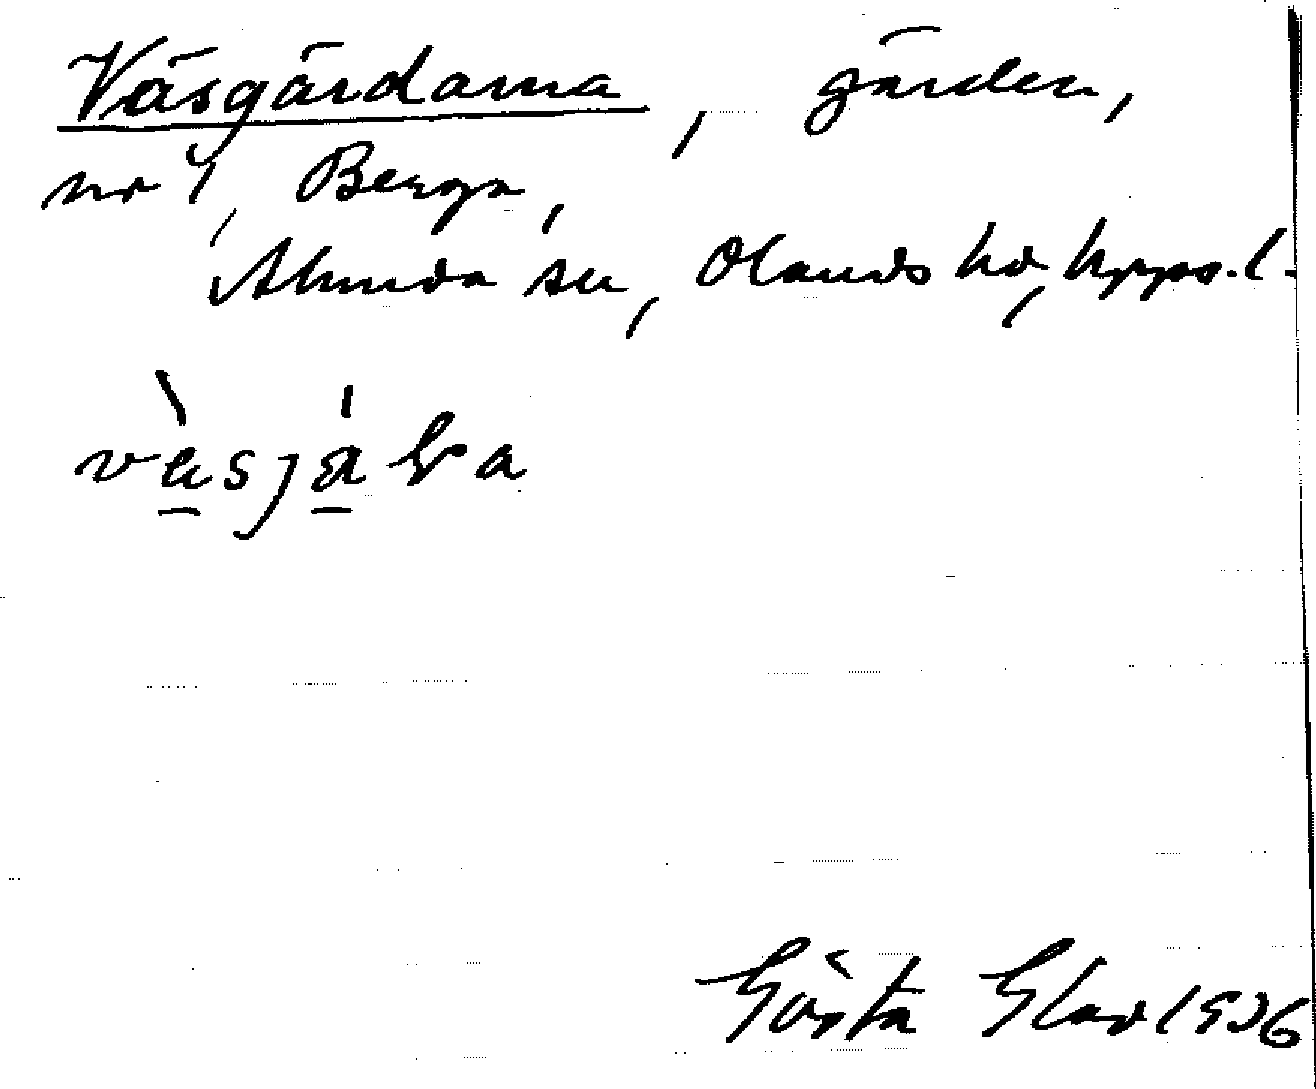 Väsgärdarna, gärden,
nr 1, Berga,
Alunda sn, Olands hd, Upps. l.
Gösta Glad 1936